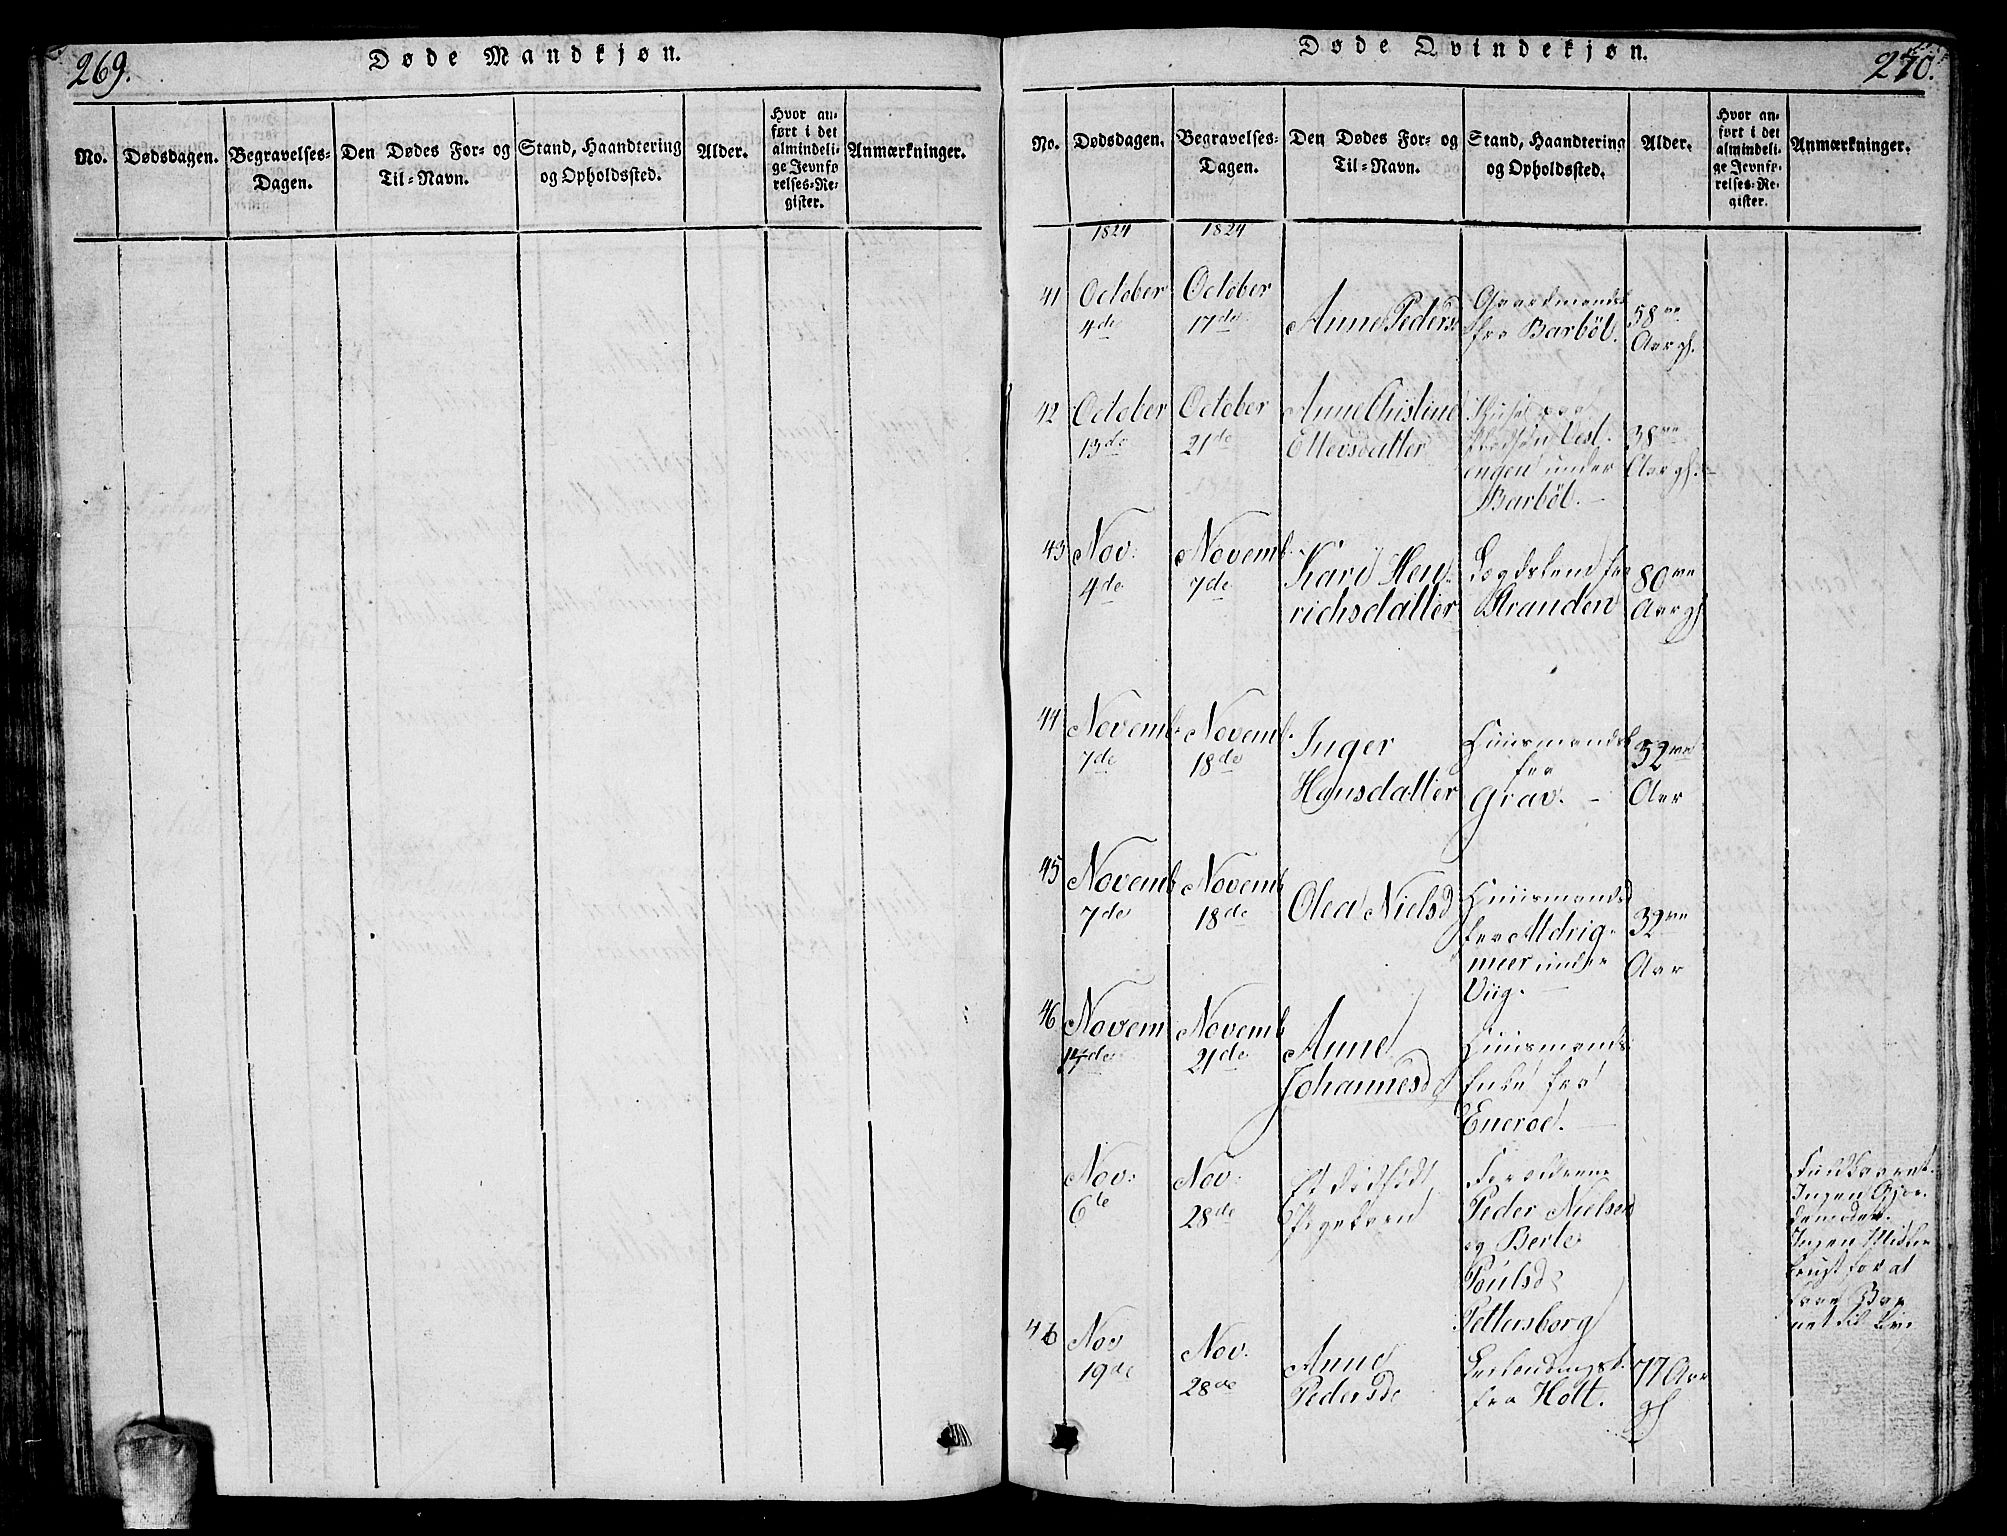 269.
Døde Mandkjøn.
No.
Dødsdagen.
Begravelses-
Dagen.
Den Dødes For- og
Til-Navn.
Stand, Haandtering
og Opholdssted.
Alder.
Hvor an-
ført i det
almindeli-
ge Jevnfø
relses-Re-
gister.
Anmærkninger.
Døde Qvindekjøn.
270.
No.
Dødsdagen.
Begravelses-
Dagen.
Den Dødes For- og
Til-Navn.
Stand, Haandtering
og Opholdssted.
Alder.
Hvor an-
ført i det
almindeli-
ge Jevnfø-
relses-Re-
gister.
Anmærkninger.
1824
1824
41
October
4de
October
17de
Anne Pedersd
Gaardmands
fra Barböl.
58ve
Aar gl.
42
October
13de
October
21de
Anne Christine
Ellevsdatter
Pladsen Vest-
engen under
Barböl.
38ve
Aar gl.
43
Nov:
4de
Novemb.
7de
Kari Hen-
richsdatter
Legdslem fra
Stranden
80ve
Aar gl
44
Novemb.
7de
Novemb.
18de
Inger
Hansdatter
Huusmandsk
fra
Grav.
52ve
Aar
45
Novemb
7de
Novemb
18de
Olea Nielsd
Huusmands
under
Viig.
32ve
Aar
46
Novem
14de
Novemb
21de
Anne
Johannesd
Huusmands
Enke fra
Eneroe.
Nov:
6te
Nov:
28de
Et dödfödt
Pigebarn
Forældrene
Peder Nielsen
og Berte
Poulsd
Pettersborg
Fuldbaaret.
Ingen Gjor-
demoder.
Ingen Midler
brugt for at
faae Bar
net til Liv
46
Nov
19de
Nov.
28de
Anne
Pedersd
fra Holt.
77 Aar
gl